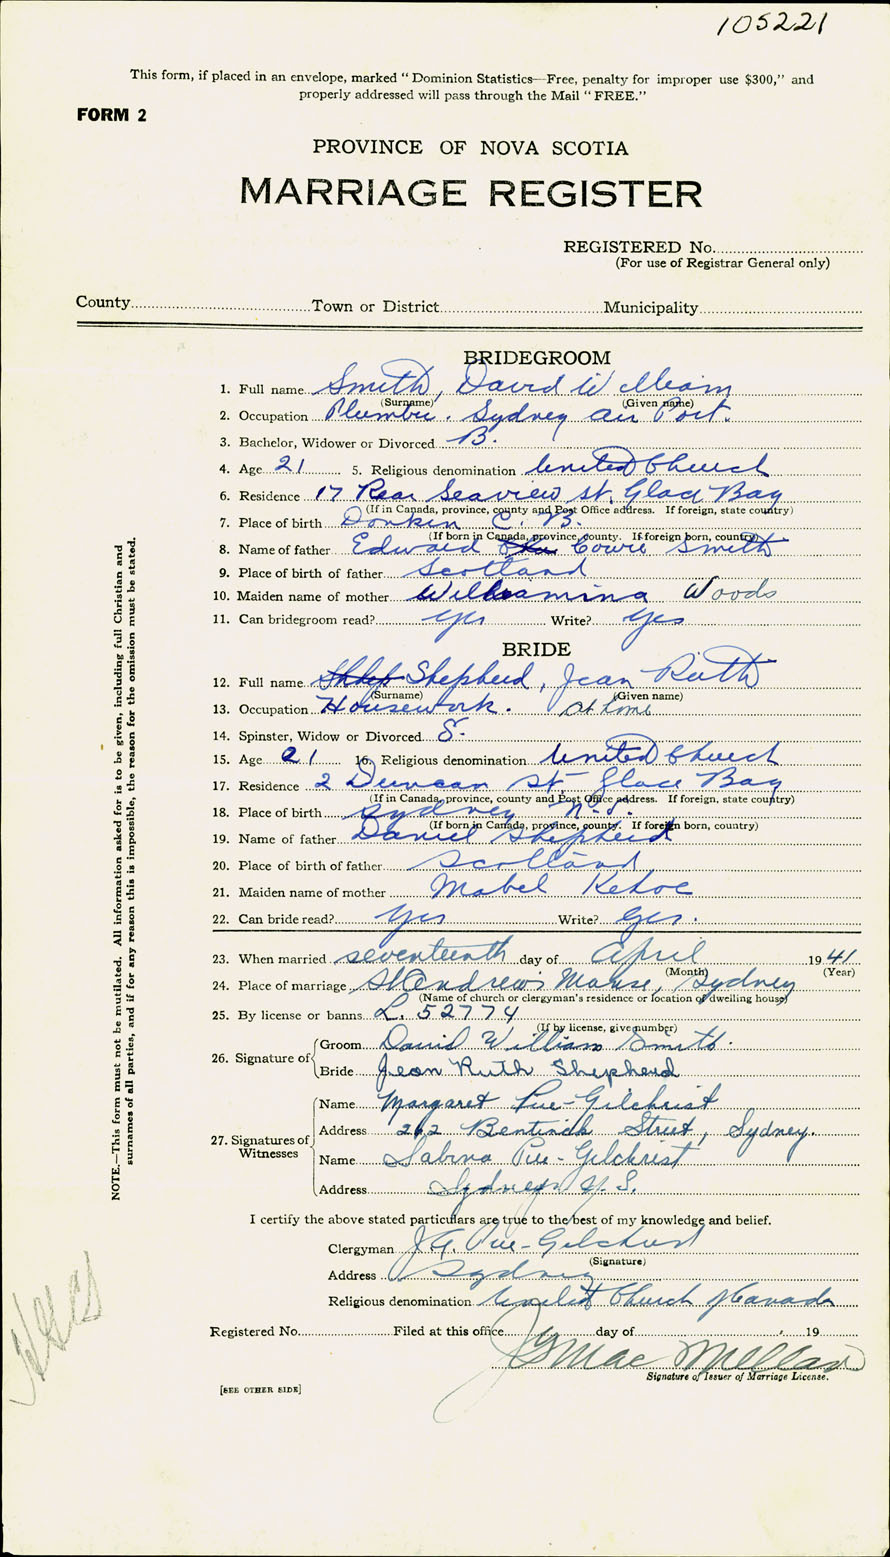 105221
This form, if placed in an envelope, marked "Dominion Statistics—Free, penalty for improper use $300," and
properly addressed will pass through the Mail "FREE."
FORM 2
PROVINCE OF NOVA SCOTIA
MARRIAGE REGISTER
REGISTERED No.
(For use of Registrar General only)
County Town or District Municipality
BRIDEGROOM
1. Full name Smith, David William
(Surname) (Given name)
2. Occupation Plumber. Sydney Air Port.
3. Bachelor, Widower or Divorced B.
4. Age 21 5. Religious denomination United Church
6. Residence 17 Rear Seaview St. Glace Bay
(If in Canada, province, county and Post Office address. If foreign, state country)
7. Place of birth Donkin C. B.
(If born in Canada, province, county. If foreign born, country)
8. Name of father Edward Cowie Smith
9. Place of birth of father Scotland
10. Maiden name of mother Williamina Woods
11. Can bridegroom read? yes Write? yes
BRIDE
12. Full name Shepherd, Jean Ruth
(Surname) (Given name)
13. Occupation Housework. at home
14. Spinster, Widow or Divorced S.
15. Age 21 16. Religious denomination United Church
17. Residence 2 Duncan St Glace Bay
(If in Canada, province, county and Post Office address. If foreign, state country)
18. Place of birth Sydney N.S.
(If born in Canada, province, county. If foreign born, country)
19. Name of father Daniel Shepherd
20. Place of birth of father Scotland
21. Maiden name of mother Mabel Kehoe
22. Can bride read? yes Write? yes.
23. When married seventeenth day of April 1941
(Month) (Year)
24. Place of marriage St Andrew's Manse, Sydney
(Name of church or clergyman's residence or location of dwelling house)
25. By license or banns L. 52774
(If by license, give number)
26. Signature of
Groom David William Smith.
Bride Jean Ruth Shepherd
27. Signatures of Witnesses
Name Margaret Pue-Gilchrist
Address 262 Bentinck Street, Sydney.
Name Sabina Pue-Gilchrist
Address Sydney N.S.
I certify the above stated particulars are true to the best of my knowledge and belief.
Clergyman J.A. Pue-Gilchrist
(Signature)
Address Sydney
Religious denomination United Church of Canada
Registered No. Filed at this office day of 19
MacMillan
Signature of Issuer of Marriage License.
[SEE OTHER SIDE]
NOTE.—This form must not be mutilated. All information asked for is to be given, including full Christian and
surnames of all parties, and if for any reason this is impossible, the reason for the omission must be stated.